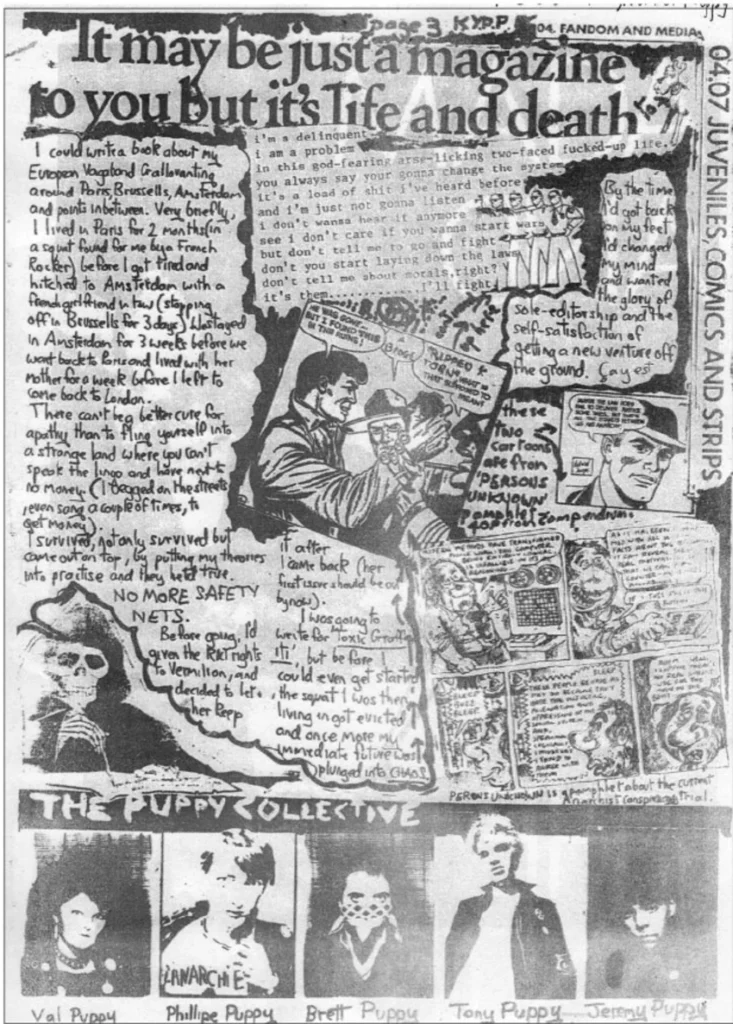 page 3 KYPP.
04. FANDOM AND MEDIA
It may be just a magazine
to you but it's life and death
04.07 JUVENILES, COMICS AND STRIPS
I could write a book about my
European Vagabond Grallovanting
around Paris, Brussells, Amsterdam
and points inbetween. Very briefly,
I lived in Paris for 2 months (in
a squat found for me by a French
Rocker) before I got tired and
hitched to Amsterdam with a
friend girlfriend in tow (stopping
off in Brussells for 3 days) We stayed
in Amsterdam for 3 weeks before we
went back to Paris and lived with her
mother for a week before I left to
come back to London.
There can't be a better cure for
apathy than to fling yourself into
a strange land where you can't
speak the lingo and have next to
no money. (I begged on the streets
, even sang a couple of times, to
get money).
I survived, not only survived but
came out on top, by putting my theories
into practise and they held true.
NO MORE SAFETY
NETS.
Before going, I'd
given the R&T rights
to Vermilion, and
decided to let
her keep
it after
I came back (her
first issue should be out
by now).
I was going to
write for 'Toxic Graffiti
' but before I
could even get started
, the squat I was then
living in got evicted
and once more my
immediate future was
plunged into CHAOS
By the time
I'd got back
on my feet
I'd changed
my mind
and wanted
the glory of
sole-editorship and the
self-satisfaction of
getting a new venture off
the ground.
i'm a delinquent
i am a problem
in this god-fearing arse-licking two-faced fucked-up life.
you always say your gonna change the system
it's a load of shit i've heard before
and i'm just not gonna listen
i don't wanna hear it anymore
see i don't care if you wanna start wars
but don't tell me to go and fight
don't you start laying down the laws
don't tell me about morals, right?
it's them............I'll fight
HE WAS GONE...
BUT I FOUND THIS
IN THE RUINS!
'RIPPED &
TORN'? WHAT IS
THAT SUPPOSED TO
MEANT
these
two
cartoons
are from
'PERSONS
UNKNOWN'
pamphlet
PERSONS UNKNOWN is a pamphlet about the current
Anarchist conspiracy trial.
THE PUPPY COLLECTIVE
LANARCHIE
Val Puppy
Phillipe Puppy
Brett Puppy
Tony Puppy
Jeremy Puppy